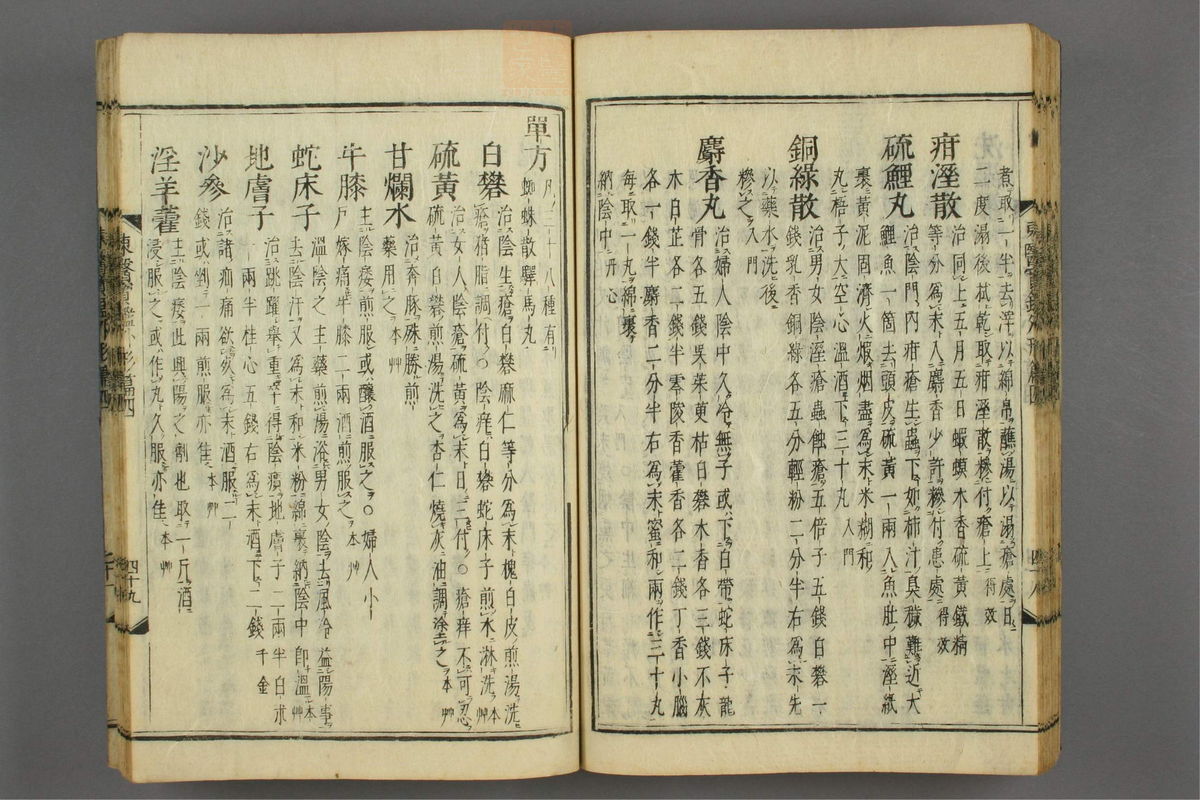 煮取一半去滓以綿帛蘸湯以湯瘡處日
二度湯後拭乾取疳濕散摻付瘡上 得效
疳溼散 治同上五月五日蝦蟆木香硫黃鐵精
等分爲末入麝香少許摻付患處 得效
硫鯉丸 治陰門內疳瘡生蟲下如柿汁臭穢難近大
鯉魚一箇去頭皮硫黃一兩入魚肚中溼紙
裹黃泥固濟火煅烟盡爲末米糊和
丸梧子大空心溫酒下三十丸 入門
銅綠散 治男女陰溼瘡蟲蝕瘡五倍子五錢白礬一
錢乳香銅綠各五分輕粉二分半右爲末先
以藥水洗後
摻之 入門
麝香丸 治婦人陰中久冷無子或下白帶蛇床子龍
骨各五錢吳茱萸枯白礬木香各三錢不灰
木白芷各二錢半零陵香藿香各二錢丁香小腦
各一錢半麝香二分半右爲末蜜和兩作三十丸
每取一丸綿裹
納陰中 丹心
單方 凡三十八種有
蜘蛛散驛馬丸
白礬 治陰生瘡白礬麻仁等分爲末槐白皮煎湯洗
瘡猪脂調付○陰痒白礬蛇床子煎水淋洗 本艸
硫黃 治女人陰瘡硫黃爲末日三付○瘡痒不可忍
硫黃白礬煎湯洗之杏仁燒灰油調塗之 本艸
甘爛水 治奔豚殊勝煎
藥用之 本艸
牛膝 主陰痿煎服或釀酒服之○婦人小
戶嫁痛牛膝二兩酒煎服之 本艸
蛇床子 溫陰之主藥煎湯浴男女陰去風冷益陽事
去陰汗又爲末和米粉綿裹納陰中卽溫 本艸
地膚子 治跳躍舉重卒得陰㿗地膚子二兩半白朮
一兩半桂心五錢右爲末酒下二錢 千金
沙參 治諸疝痛欲死爲末酒服二
錢或剉一兩煎服亦佳 本艸
淫羊藿 主陰痿此興陽之劑也取一斤酒
浸服之或作丸久服亦佳 本艸
四十九